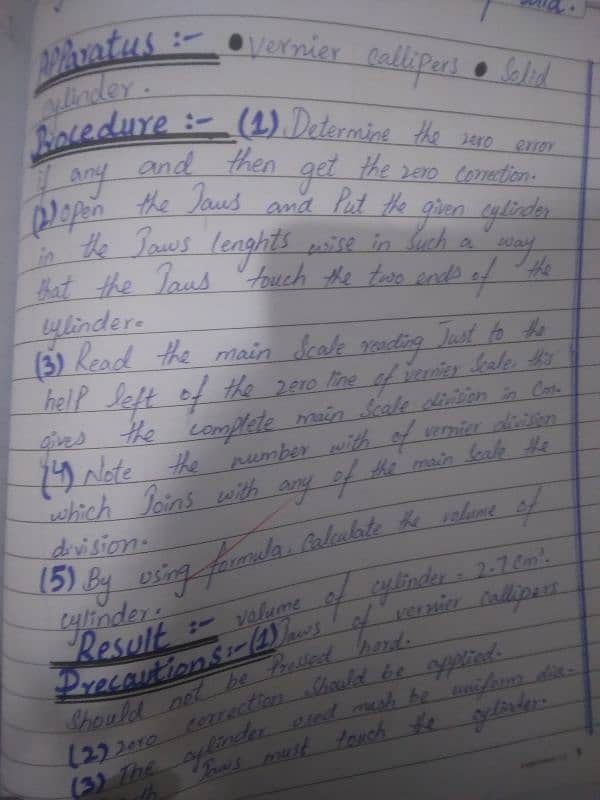 solid.
Apparatus :- • Vernier Callipers • Solid
cylinder.
Procedure :- (1) Determine the zero error
if any and then get the zero correction.
(2) Open the Jaws and Put the given cylinder
in the Jaws lenghts wise in Such a way
that the Jaws touch the two ends of the
cylinder.
(3) Read the main Scale reading Just to the
help left of the zero line of vernier Scale, this
gives the complete main Scale division in Cm.
(4) Note the number with of vernier division
which Joins with any of the main Scale the
division.
(5) By using formula, Calculate the volume of
cylinder.
Result :- volume of cylinder = 2.7 Cm³.
Precautions:-(1) Jaws of vernier Callipers
Should not be Pressed hard.
(2) zero correction Should be applied.
(3) The cylinder used must be uniform dia-
Jaws must touch the cylinder.